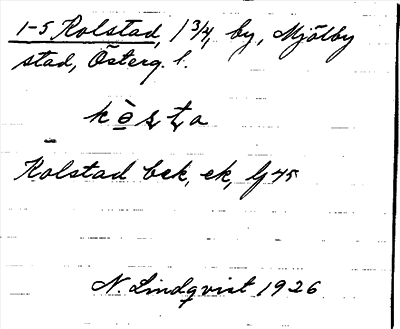 1-5 Kolstad, 1 3/4, by, Mjölby
stad, Österg. l.
Kolstad bek, ek, Gf 45
N. Lindqvist 1926